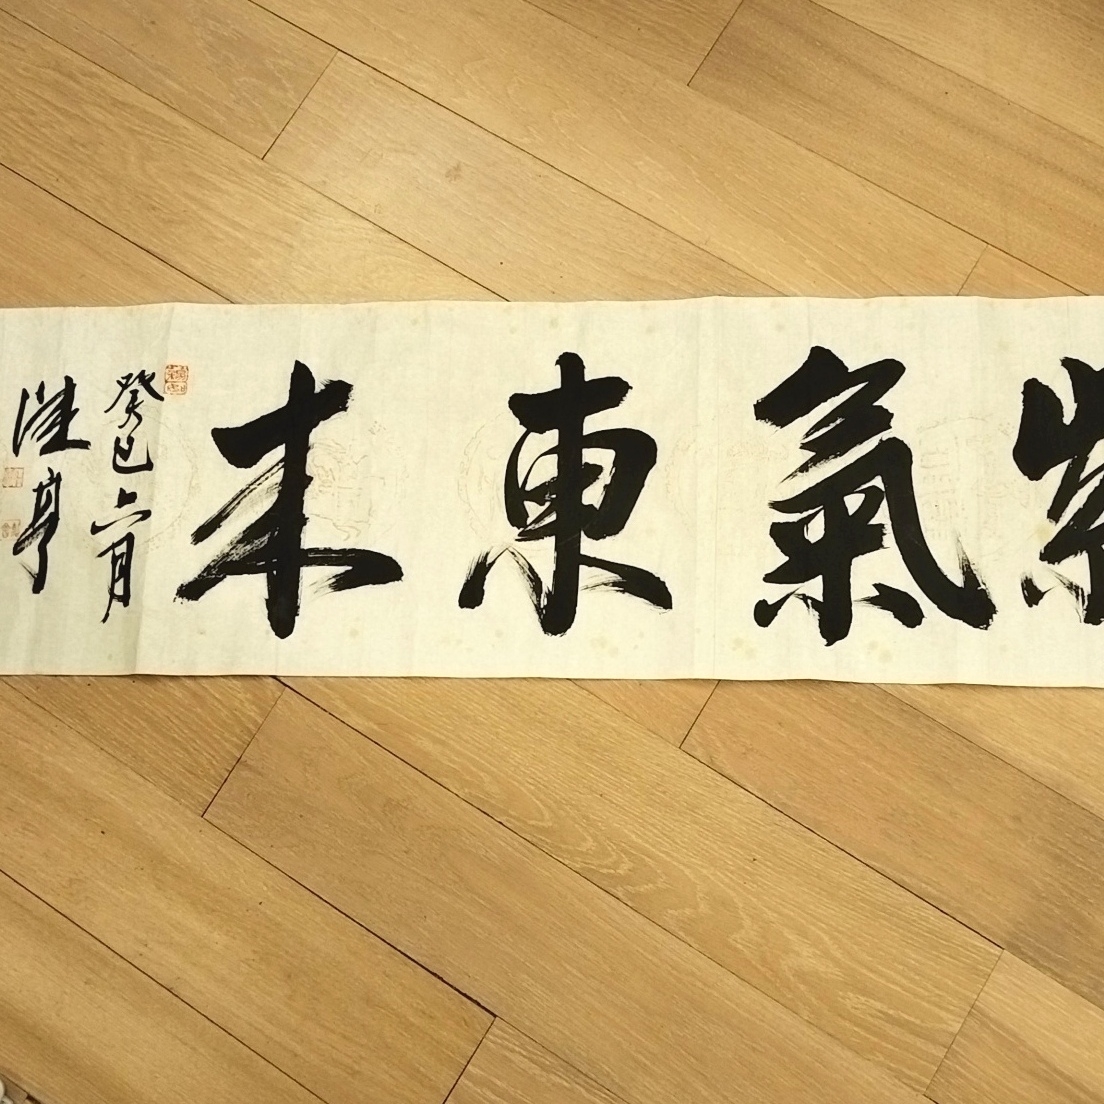 紫氣東来
癸巳六月